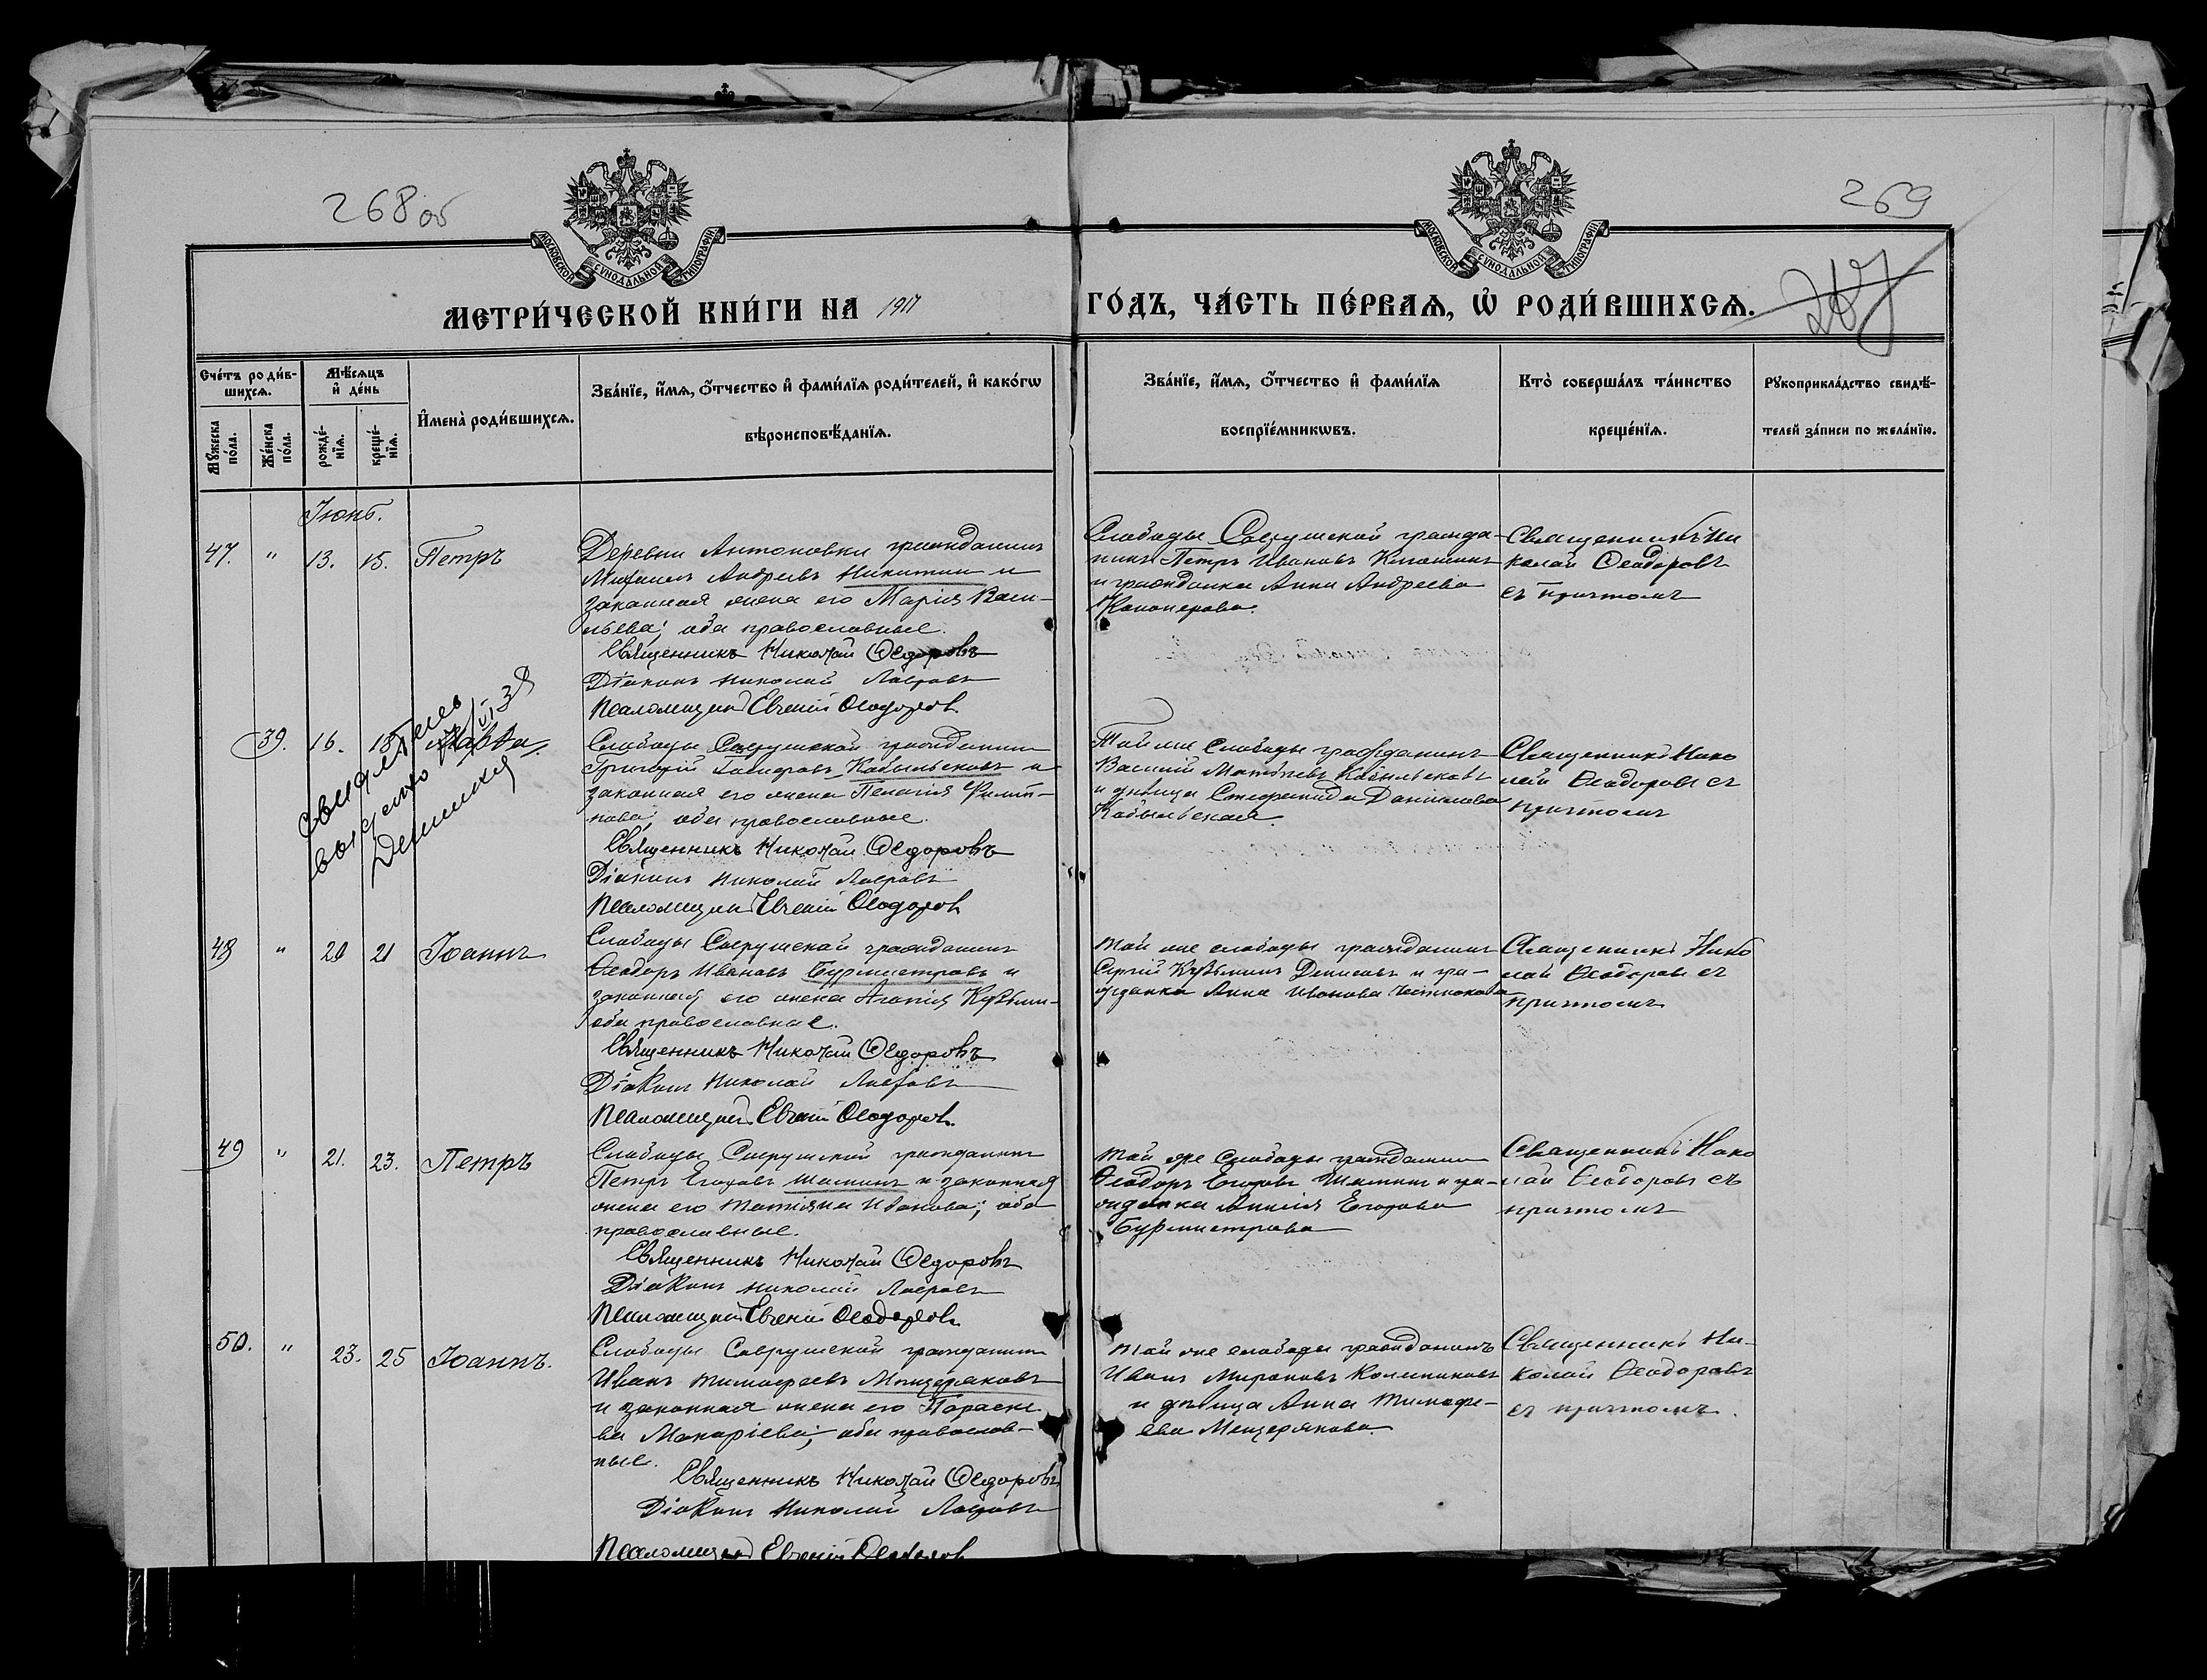 268 об
269
267
МОСКОВСКОЙ СѴНОДАЛЬНОЙ ТИПОГРАФІИ
МОСКОВСКОЙ СѴНОДАЛЬНОЙ ТИПОГРАФІИ
МЕТРИ́ЧЕСКОЙ КНИ́ГИ НА 1917
ГО́ДЪ, ЧА́СТЬ ПЕ́РВАѦ, Ѡ҆ РОДИ́ВШИХСѦ.
Сче́тъ роди́в-
шихсѧ.
Мѣ́сѧцъ
и҆ де́нь
Мꙋ́жеска по́ла.
Же́нска по́ла.
рожде́-
нїѧ.
креще́-
нїѧ.
И҆мена̀ роди́вшихсѧ.
Зва́нїе, и҆́мѧ, ѻ҆́тчество и҆ фами́лїѧ роди́телей, и҆ како́гѡ
вѣроисповѣ́данїѧ.
Зва́нїе, и҆́мѧ, ѻ҆́тчество и҆ фами́лїѧ
воспрїе́мникѡвъ.
Кто̀ соверша́лъ та́инство
креще́нїѧ.
Рꙋкоприкла́дство свидѣ́-
телей за́писи по жела́нїю.
Іюнь.
47. " 13. 15. Петръ
Деревни Антоновки гражданинъ
Михаилъ Андреевъ Никитинъ и
законная жена его Марія Васи-
льева; оба православные.
Священникъ Николай Ѳедоровъ
Діаконъ Николай Лавровъ
Псаломщикъ Евгеній Ѳеодоровъ
Слободы гражда-
нинъ Петръ Ивановъ
и гражданка Анна Андреева
Канонерова.
Священникъ Ни
колай Ѳеодоровъ
съ причтомъ
39. 16. 18. Марѳа.
Свидетель
выдано
Слободы гражданинъ
Григорій Кобыльсковъ и
законная его жена Пелагія Филип-
пова; оба православные.
Священникъ Николай Ѳедоровъ
Діаконъ Николай Лавровъ
Псаломщикъ Евгеній Ѳеодоровъ
Той же слободы гражданинъ
Василій Матвѣевъ Кобыльсковъ
и дѣвица Стефанида Даніилова
Кобыльская.
Священникъ Нико
лай Ѳеодоровъ съ
причтомъ
48 " 20 21 Іоаннъ
Слободы гражданинъ
Ѳеодоръ Ивановъ Бурмистровъ и
законная его жена Агапія Кузьми-
оба православные.
Священникъ Николай Ѳедоровъ
Діаконъ Николай Лавровъ
Псаломщикъ Евгеній Ѳеодоровъ.
той же слободы гражданинъ
Сергій Кузьминъ Денисовъ и гра-
жданка Анна Иванова
Священникъ Нико
лай Ѳеодоровъ съ
причтомъ
49 " 21. 23. Петръ
Слободы гражданинъ
Петръ Егоровъ Шашинъ и законная
жена его Татіяна Иванова; оба
православные.
Священникъ Николай Ѳедоровъ
Діаконъ Николай Лавровъ
Псаломщикъ Евгеній Ѳеодоровъ
той же слободы гражданинъ
Ѳеодоръ Егоровъ Шашинъ и гра-
жданка Егорова
Бурмистрова
Священникъ Нико
лай Ѳеодоровъ съ
причтомъ
50. " 23. 25 Іоаннъ.
Слободы гражданинъ
Иванъ Тимофеевъ Мещеряковъ
и законная жена его Параске
ва Макаріева; оба православ-
ные.
Священникъ Николай Ѳедоровъ
Діаконъ Николай Лавровъ
Псаломщикъ Евгеній Ѳеодоровъ
той же слободы гражданинъ
Иванъ Мироновъ Колесниковъ
и дѣвица Анна Тимофе-
ева Мещерякова.
Священникъ Ни-
колай Ѳеодоровъ
съ причтомъ.